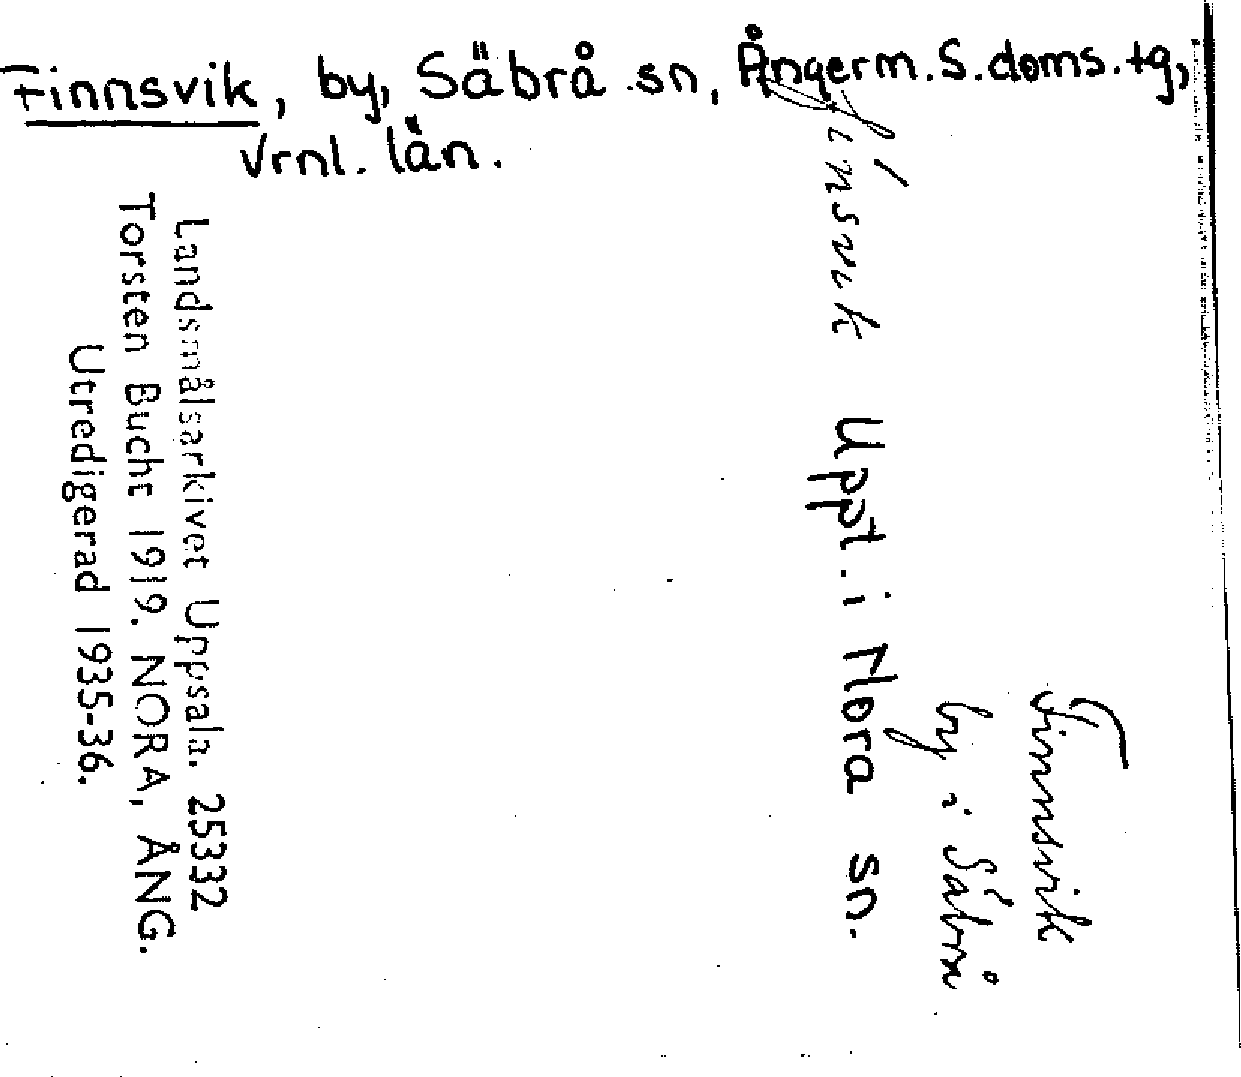 Finnsvik, by, Säbrå sn, Ångerm. S. doms. tg,
Vrnl. län.
Finnsvik
by i Säbrå
Uppt. i Nora sn.
Landsmålsarkivet Uppsala. 25332
Torsten Bucht 1919. NORA, ÅNG.
Utredigerad 1935-36.